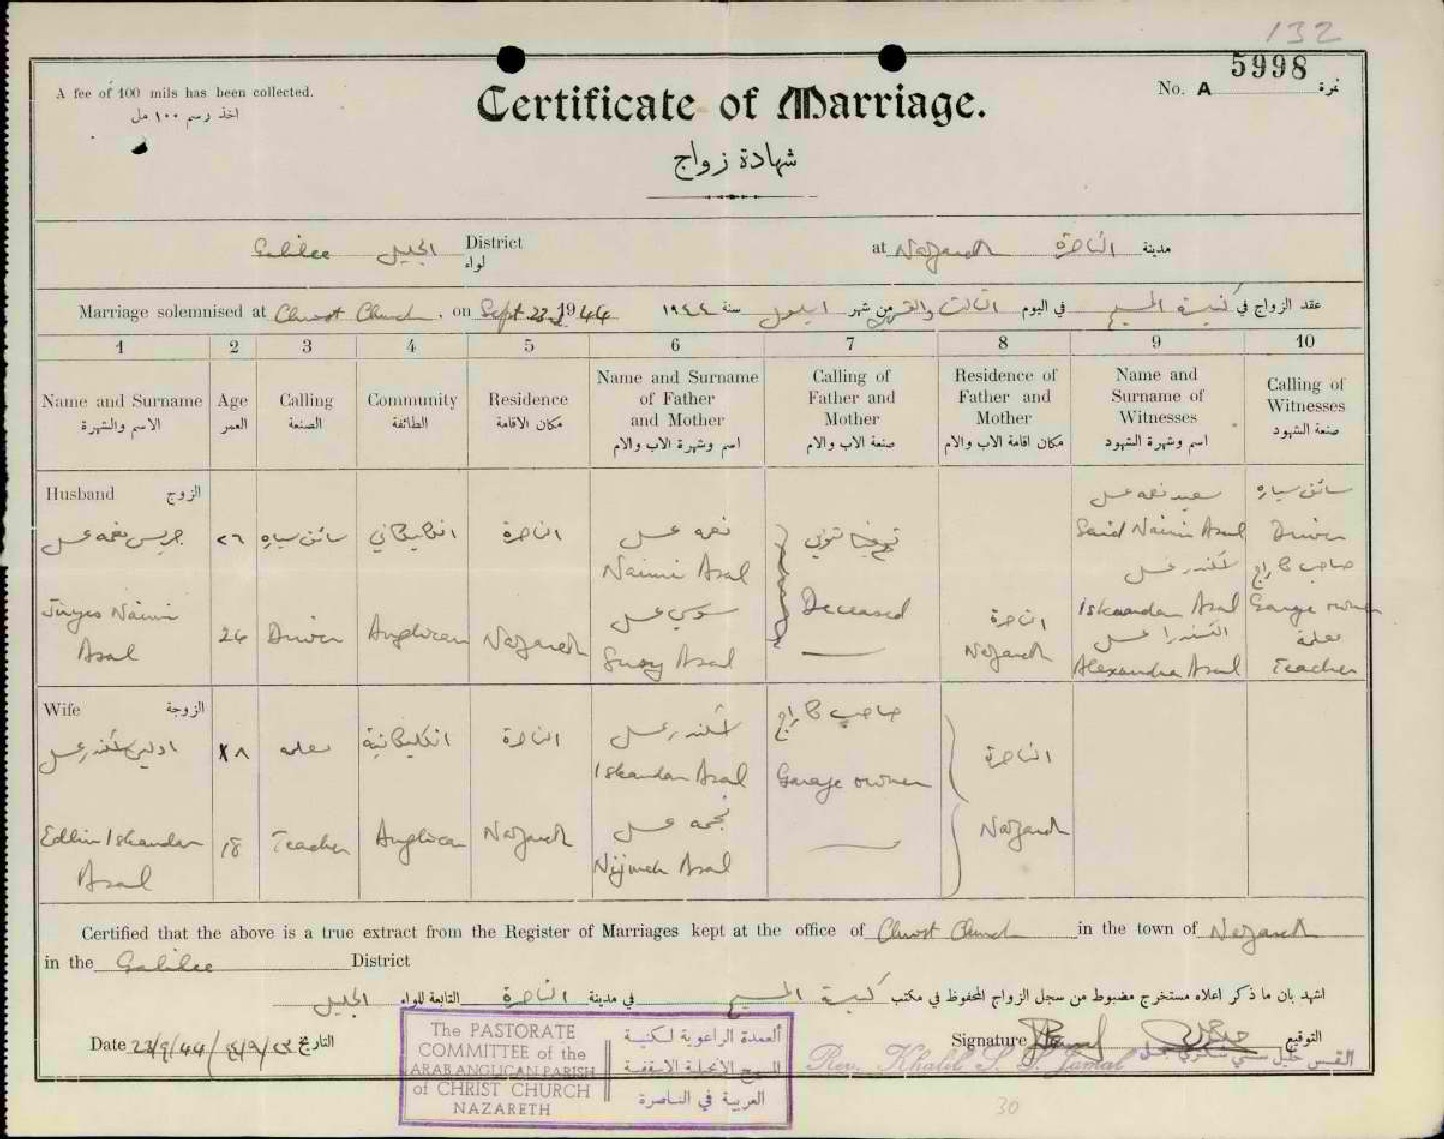 132
5998
No. A نمرة
A fee of 100 mils has been collected.
اخذ رسم ١٠٠ مل
Certificate of Marriage.
شهادة زواج
Galilee الجليل District
لواء
at Nazareth الناصرة مدينة
Marriage solemnised at Christ Church, on Sept. 23 1944
عقد الزواج في كنيسة المسيح في اليوم الثالث والعشرين من شهر ايلول سنة ١٩٤٤
1 2 3 4 5 6 7 8 9 10
Name and Surname
الاسم والشهرة
Age
العمر
Calling
الصنعة
Community
الطائفة
Residence
مكان الاقامة
Name and Surname
of Father
and Mother
اسم وشهرة الاب والام
Calling of
Father and
Mother
صنعة الاب والام
Residence of
Father and
Mother
مكان اقامة الاب والام
Name and
Surname of
Witnesses
اسم وشهرة الشهود
Calling of
Witnesses
صنعة الشهود
Husband الزوج
جريس نعمه عسل
Jiryes Naimi
Asal
٢٦
26
سائق سياره
Driver
انكليكاني
Anglican
الناصرة
Nazareth
نعمه عسل
Naimi Asal
سوسي عسل
Susy Asal
Deceased
الناصرة
Nazareth
سعيد نعمه عسل
Said Naimi Asal
اسكندر عسل
Iskandar Asal
الكسندرا عسل
Alexandra Asal
سائق سياره
Driver
صاحب كراج
Garage owner
معلمة
Teacher
Wife الزوجة
اسكندر عسل
Iskandar
Asal
١٨
18
معلمه
Teacher
انكليكانية
Anglican
الناصرة
Nazareth
اسكندر عسل
Iskandar Asal
نجمه عسل
Nijmeh Asal
صاحب كراج
Garage owner
الناصرة
Nazareth
Certified that the above is a true extract from the Register of Marriages kept at the office of Christ Church in the town of Nazareth
in the Galilee District
اشهد بان ما ذكر اعلاه مستخرج مضبوط من سجل الزواج المحفوظ في مكتب كنيسة المسيح في مدينة الناصرة التابعة للواء الجليل
Date 23/9/44 ٤٤/٩/٢٣ التاريخ
Signature التوقيع
Rev. Khalil S. S. Jamal
The PASTORATE
COMMITTEE of the
ARAB ANGLICAN PARISH
of CHRIST CHURCH
NAZARETH
العمدة الراعوية لكنيسة
المسيح الانجيلية الاسقفية
العربية في الناصرة
30